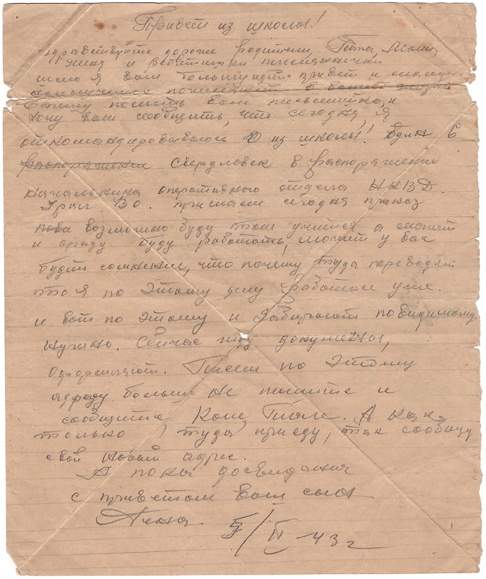 Привет из школы!
Здравствуйте дорогие родители, Папа, Мама
шлю я Вам большущий привет и
Спешу послать Вам письмишко, и
хочу Вам сообщить, что сегодня я
откомандировываюсь из школы! Еду в
Свердловск в распоряжение
начальника оперативного отдела НКВД
Урал ВО. прислали сегодня приказ
пока возможно буду там учится а может
и сразу буду работать, может у вас
будет сомнение, что почему туда переводят
то я по этому делу работал уже.
и вот по этому и забирают по видимому
нужно. Сейчас документы,
Оформляют. Писем по этому
адресу больше не пишите и
сообщите Коле, Тиме. А как
только туда приеду, так сообщу
свой новый адрес.
А пока досвидания
с приветом ваш сын
Лёня. 5/IV-43 г